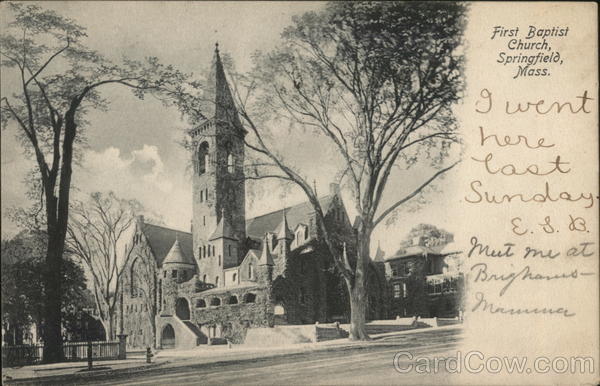 First Baptist
Church,
Springfield,
Mass.
I went
here
last
Sunday.
E.S.B.
Meet me at
Brighams-
Mamma
CardCow.com